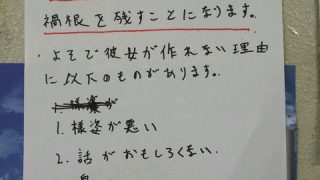 禍根を残すことになります。
・よそで彼女が作れない理由
に以下のものがあります。
1. 様姿が
1. 様姿が悪い
2. 話がおもしろくない.